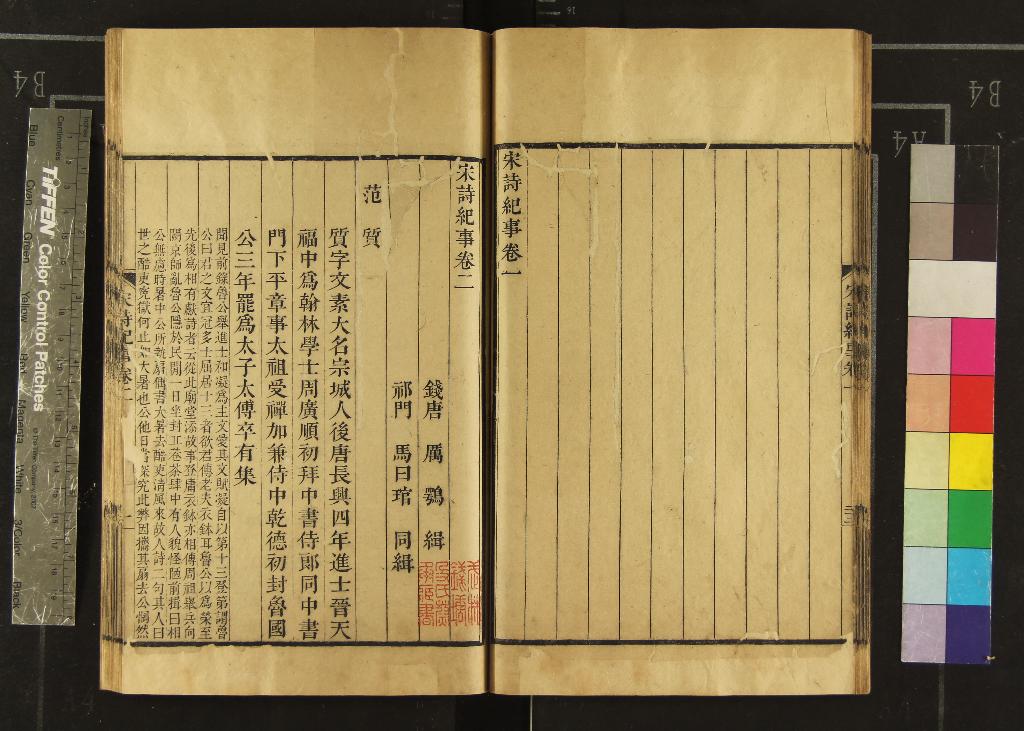 宋詩紀事卷一
宋詩紀事卷二
錢唐 厲鶚 緝
祁門 馬曰琯 同緝
范質
質字文素大名宗城人後唐長興四年進士晉天
福中爲翰林學士周廣順初拜中書侍郎同中書
門下平章事太祖受禪加兼侍中乾德初封魯國
公三年罷爲太子太傅卒有集
聞見前錄魯公舉進士和凝爲主文愛其文賦凝自以第十三登第謂魯
公曰君之文宜冠多士屈居十三者欲君傳老夫衣鉢耳魯公以爲榮至
先後爲相有獻詩者云從此廟堂添故事登庸衣鉢亦相傳周祖舉兵向
闕京師亂魯公隱於民間一日坐封丘巷茶肆中有人貌怪陋前揖曰相
公無慮時暑中公所執扇偶書大暑去酷吏清風來故人詩二句其人曰
世之酷吏冤獄何止如大暑也公他日當深究此弊因攜其扇去公惘然
宋詩紀事卷二
一
宋詩紀事卷一
Centimetres
Inches
TIFFEN Color Control Patches
© The Tiffen Company, 2007
Blue
Cyan
Green
Yellow
Red
Magenta
White
3/Color
Black
B4
B4
A4